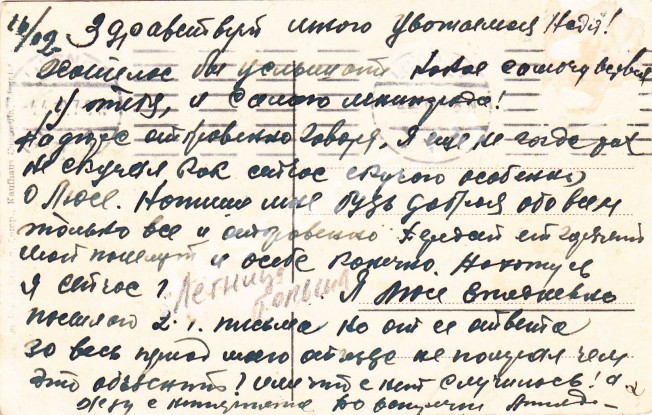 16/02. Здравствуй много уважаемая Надя!
Хотелос бы услышать какое
и самого ленинграда!
Надюш откровенно говоря, я еще не когда так
не скучал как сейчас скучаю особенно
о Люсе. Напиши мне будь добра обо всем
только все и откровенно передай ей горячий
мой поцелуй и себе конечно. Нахожусь
я сейчас г. Легница Польша Я Люсе ежедневно
посылаю 2. письма но от ее ответа
за весь период моего отъезда не получал чем
это объяснить? или что с ней случилось! а
Жду с нетерпением